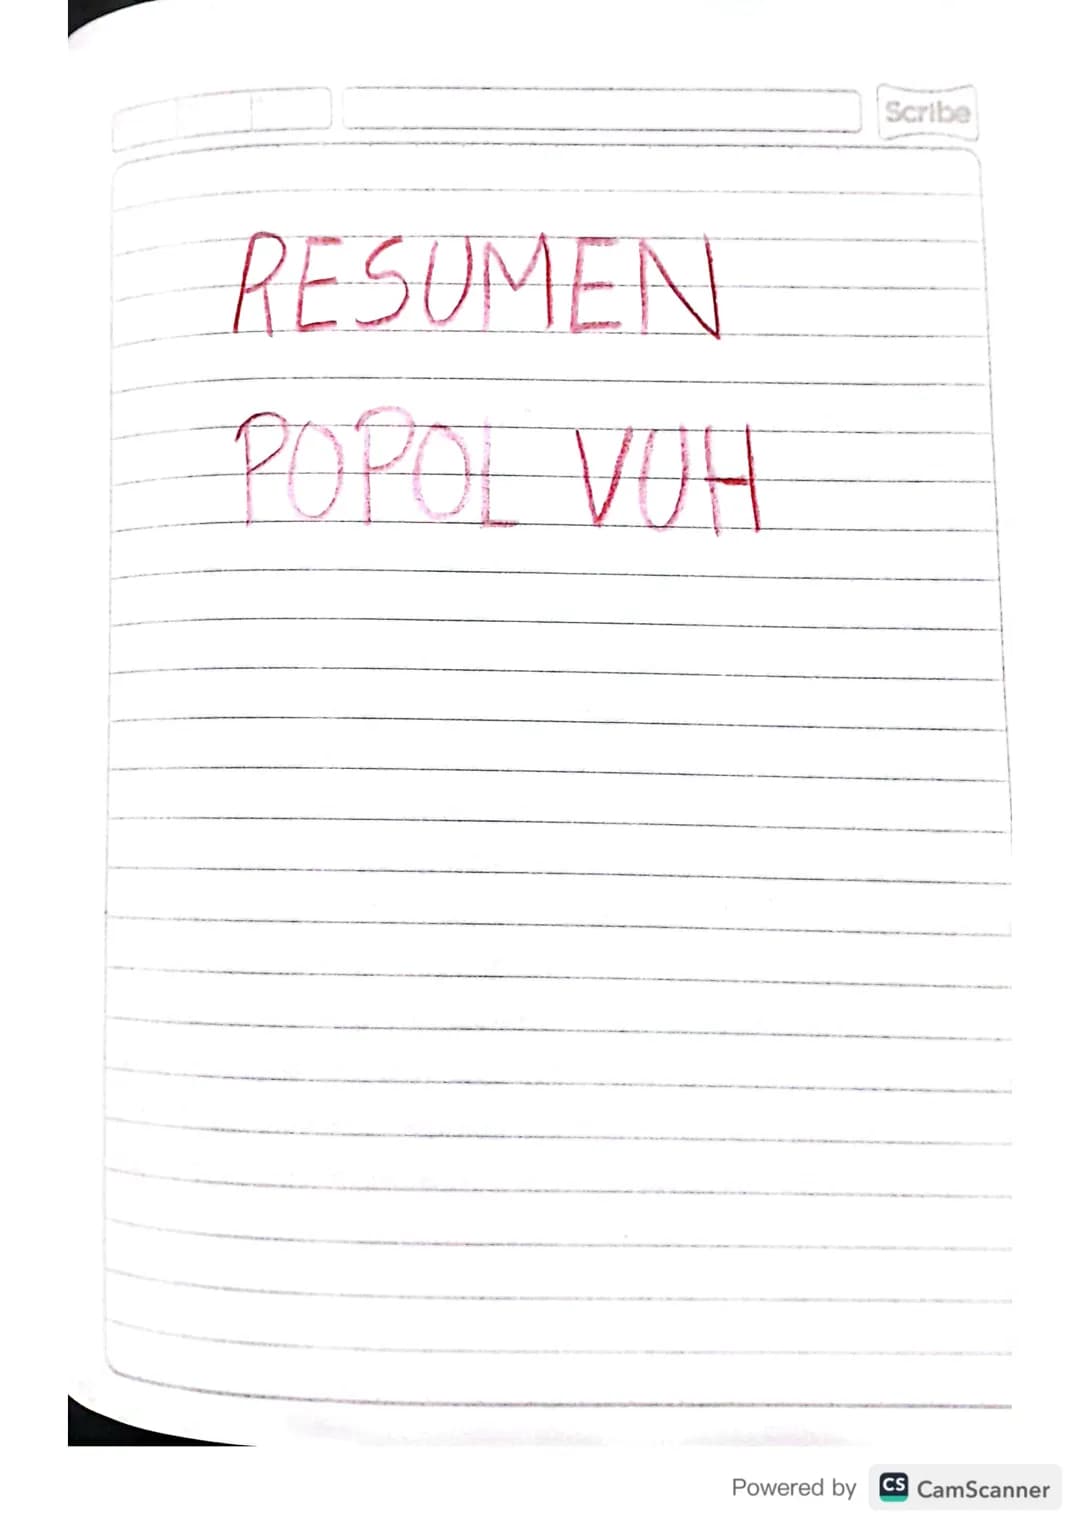 Scribe
RESUMEN
POPOL VUH
Powered by CS CamScanner